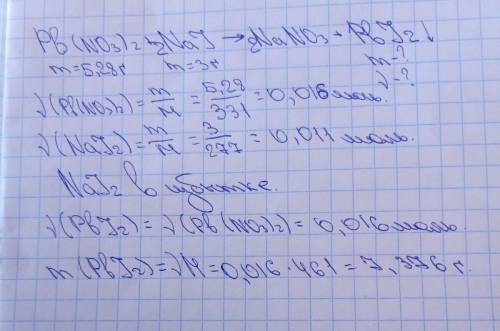 Pb(NO3)2 + 2NaJ → 2NaNO3 + PbJ2↓
m=5,29г m=3г m-?
ν-?
ν(Pb(NO3)2) = m/M = 5,29/331 = 0,016 моль.
ν(NaJ2) = m/M = 3/277 = 0,011 моль.
NaJ2 в избытке.
ν(PbJ2) = ν(Pb(NO3)2) = 0,016 моль.
m(PbJ2) = νM = 0,016·461 = 7,376 г.